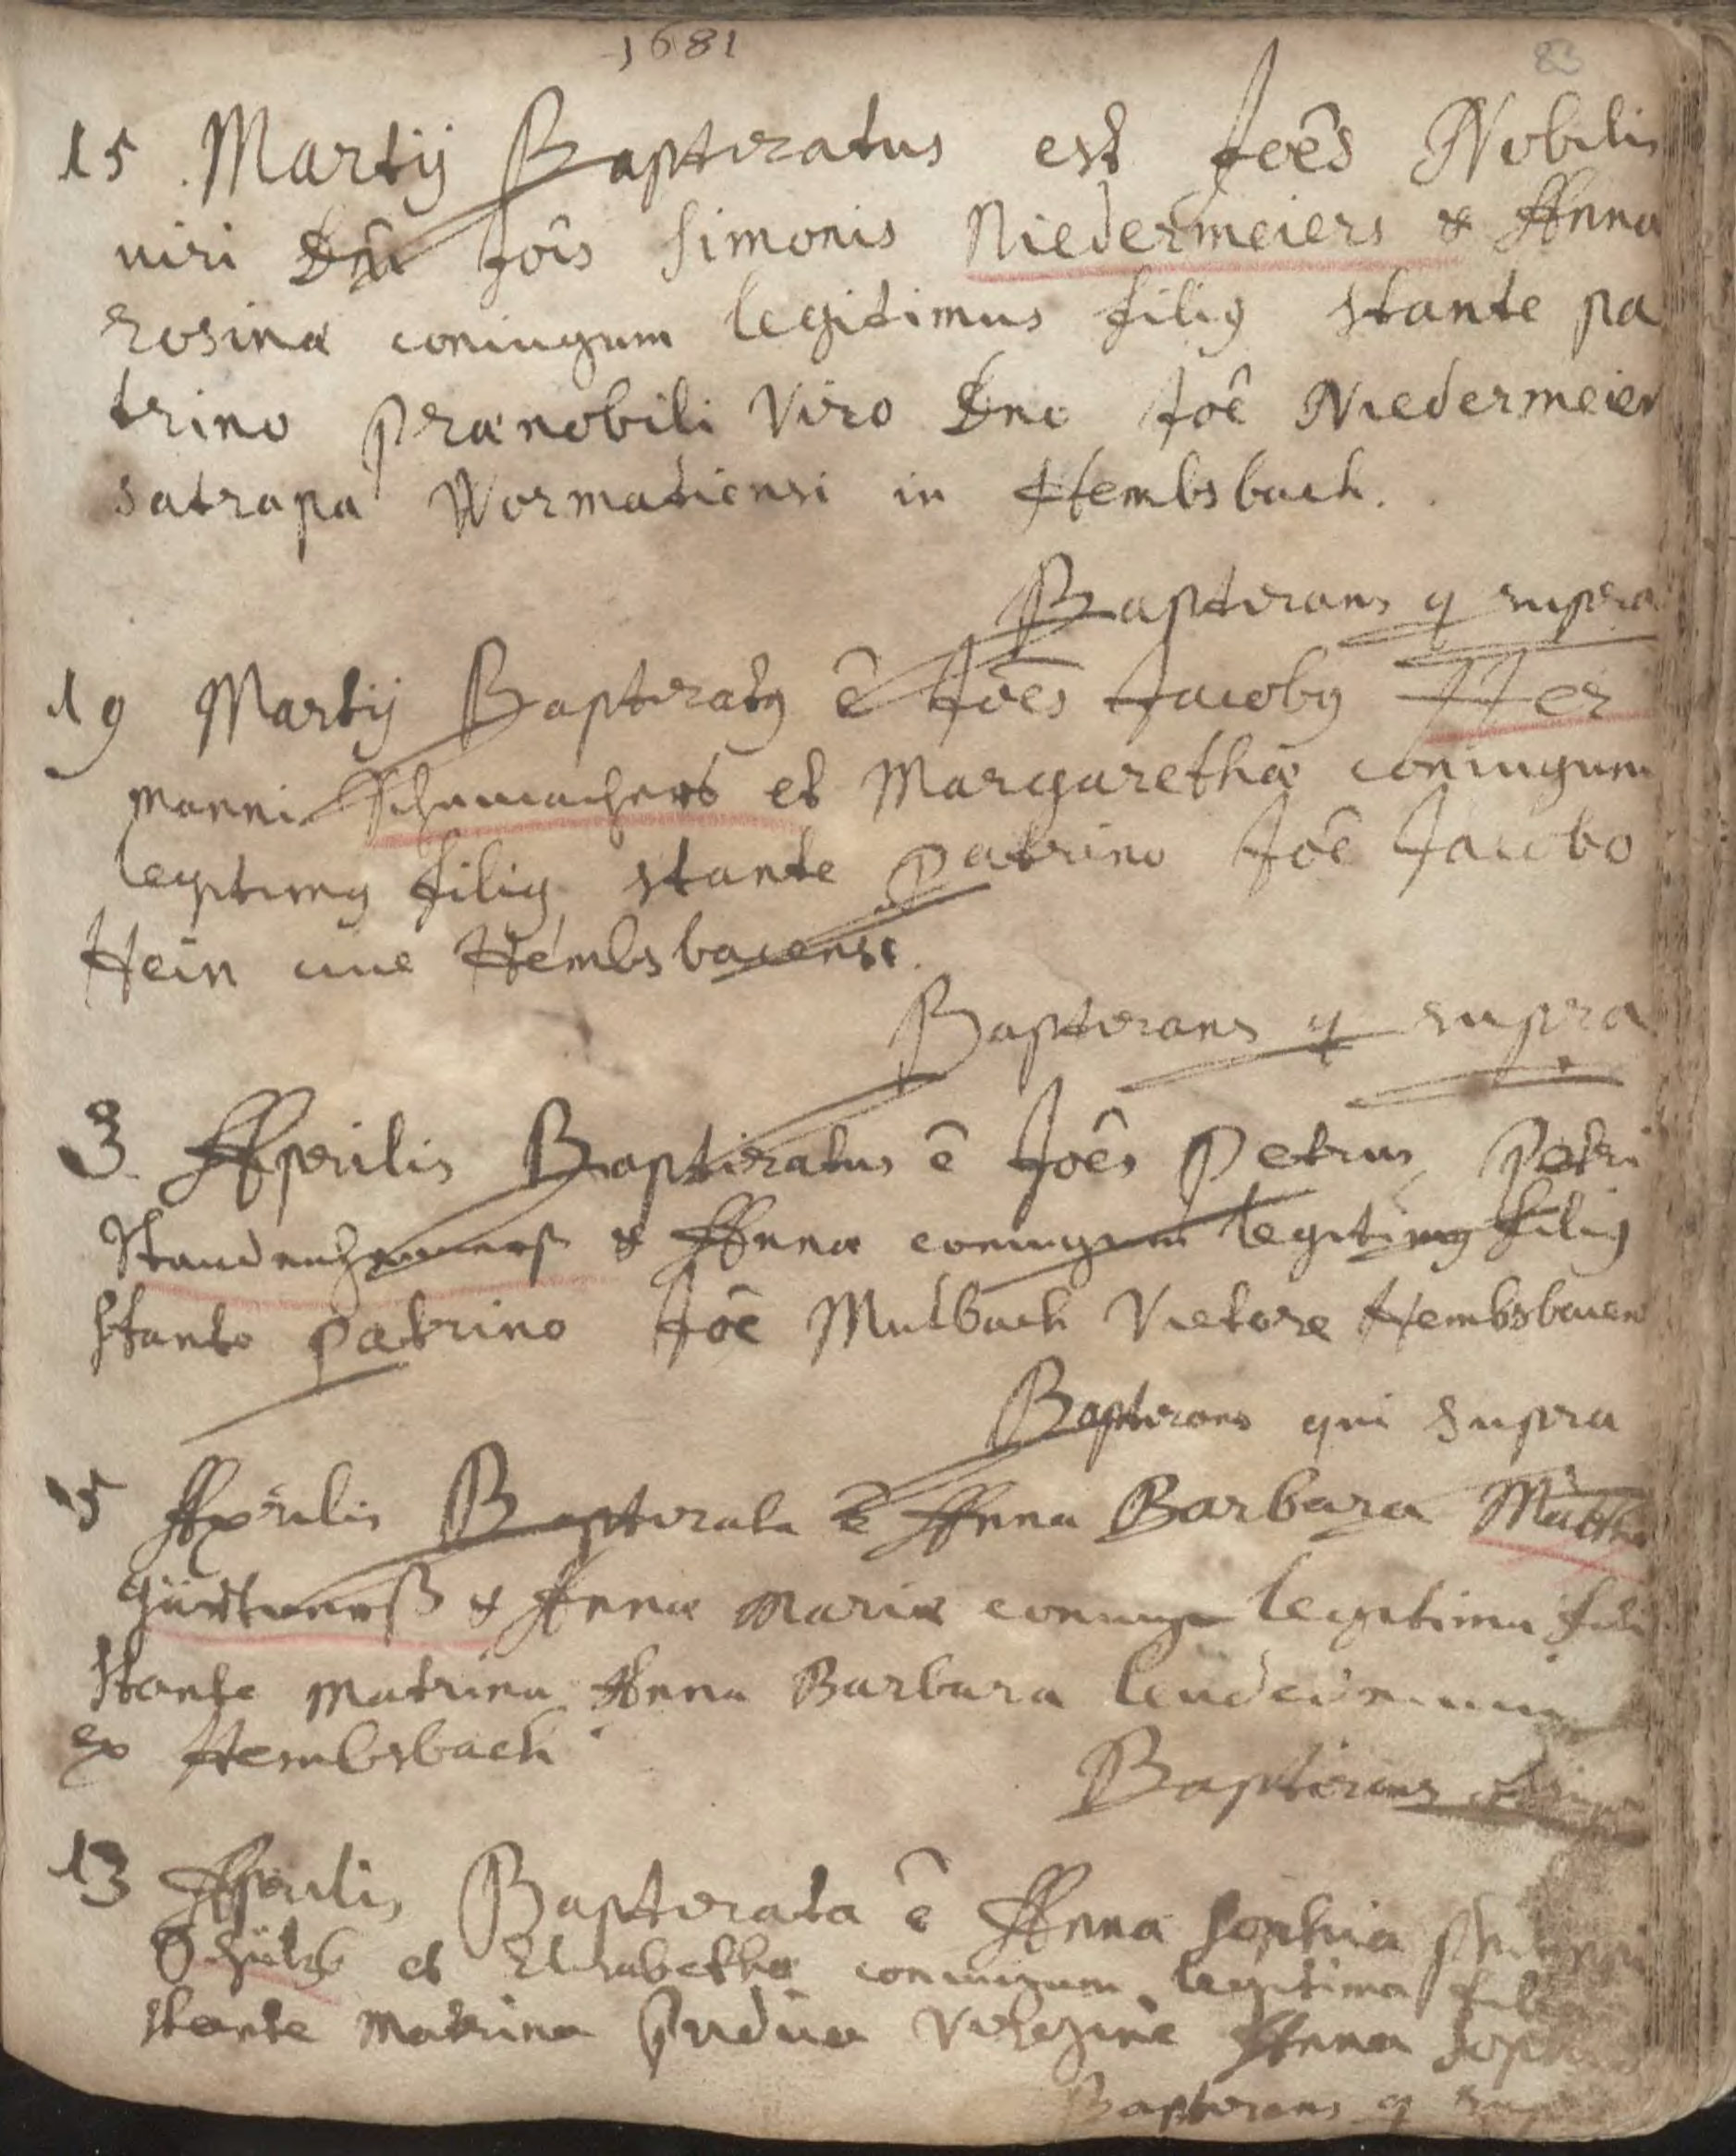 1681
83
15 Martij Baptizatus est Joês Nobilis
viri Dñi Joîs Simonis Niedermeiers & Anna
rosinæ coniugum legitimus filiꝰ stante pa
trino prænobili Viro Dno Joê Niedermeier
satrapa Wormatiensi in Hembsbach.
Baptizans q supra
19 Martij Baptizatꝰ ê Joês Jacobꝰ Her
manni Schumachers et Margarethæ coniugum
legitimꝰ filiꝰ stante patrino Joê Jacobo
Hein cive Hembsbacensi.
Baptizans q supra
3 Aprilis Baptizatus ê Joês Petrus Petri
Staudenheimerß & Annæ coniugum legitimꝰ filiꝰ
stante patrino Joê Mulbach Vietore Hembsbacen
Baptizans qui supra
5 Aprilis Baptizata ê Anna Barbara Matthæ
Gärtnerß & Annæ Mariæ coniugu legitima fili
stante matrina Anna Barbara
ex Hembsbach
Baptizans
13 Aprilis Baptizata ê Anna Sophia Philippi
Schütz et Elisabethæ coniugum legitima filia
stante matrina pudica Virgine Anna Sophia
Baptizans q sup